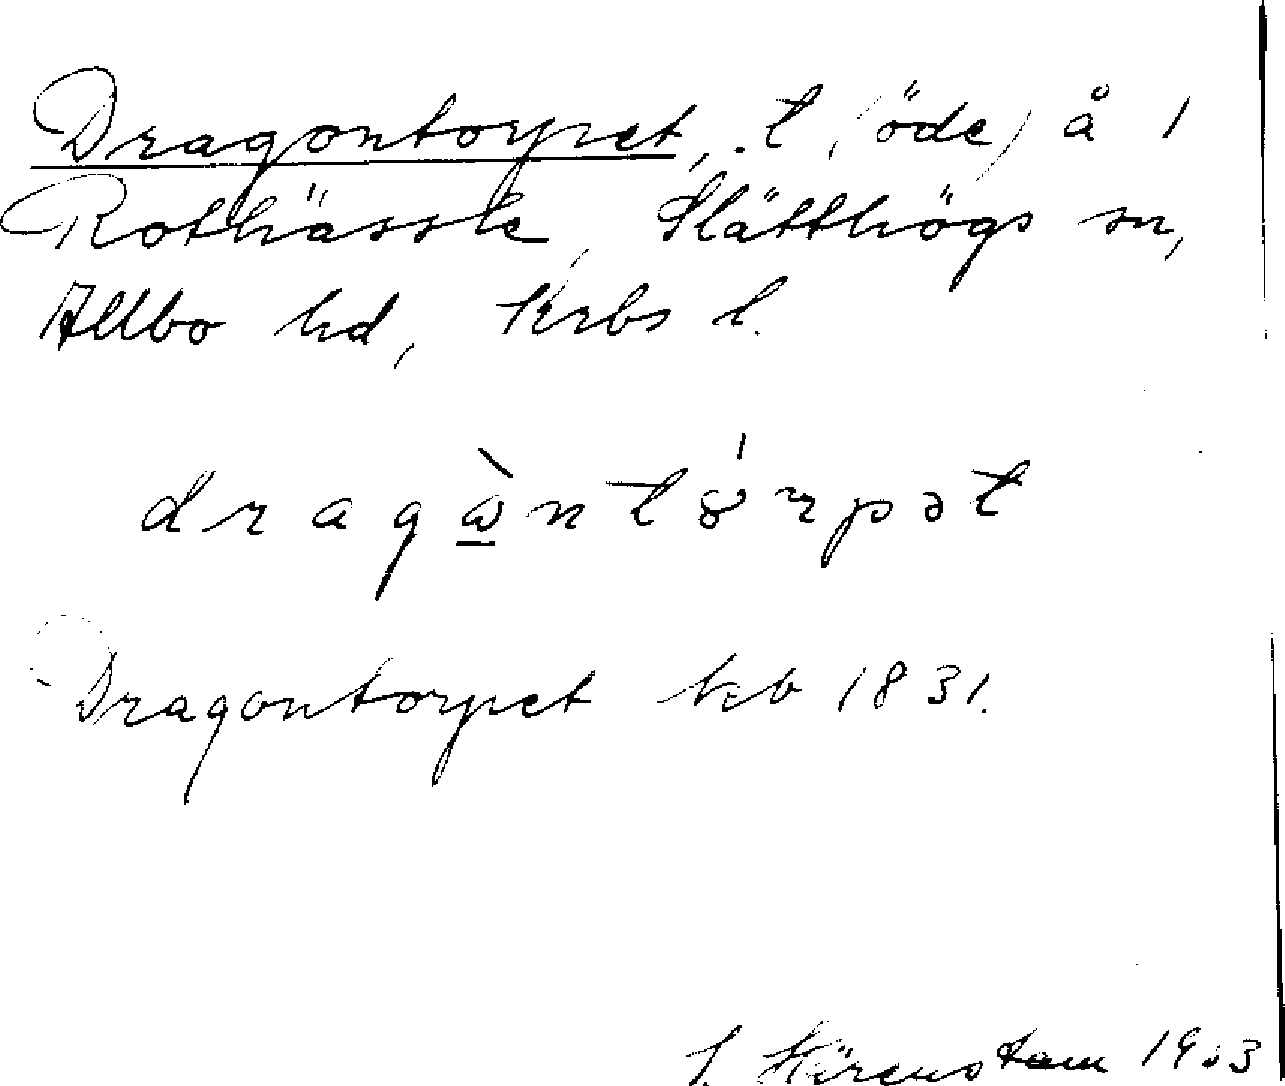 Dragontorpet, t. (öde) å 1
Rothässle, Slätthögs sn,
Allbo hd, Krbs l.
dragώntȣ́rpət
Dragontorpet kb 1831.
J. Härenstam 1933